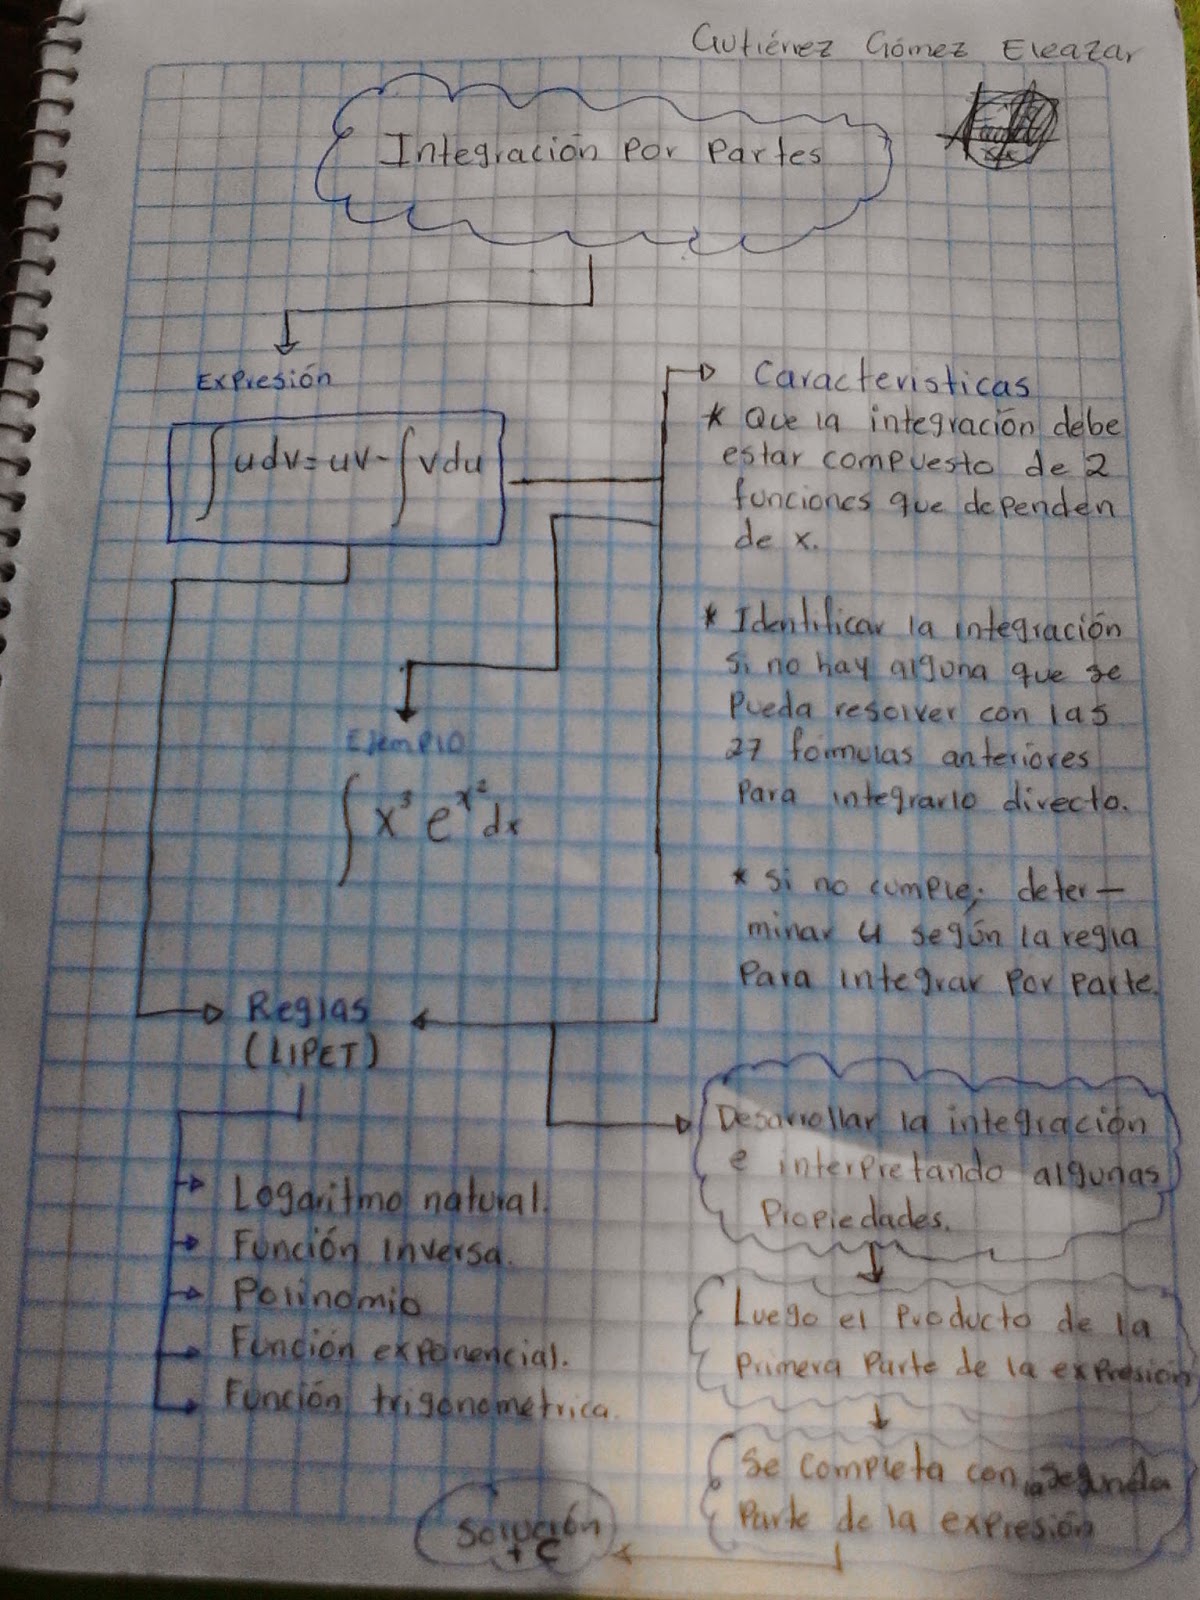 Gutiérrez Gómez Eleazar
Integración Por Partes
Expresión
∫udv=uv-∫vdu
Ejemplo
∫x³e^x² dx
Caracteristicas
* Que la integración debe
estar compuesto de 2
funciones que dependen
de x.
* Identificar la integración
si no hay alguna que se
Pueda resolver con las
27 formulas anteriores
Para integrarlo directo.
* Si no cumple; deter-
minar u según la regla
Para integrar Por Parte.
Reglas
(LIPET)
Logaritmo natural.
Función inversa.
Polinomio
Función exponencial.
Función trigonométrica.
Desarrollar la integración
e interpretando algunas
Propiedades.
Luego el Producto de la
Primera Parte de la expresión
Se completa con la segunda
Parte de la expresión
Solución
+ C